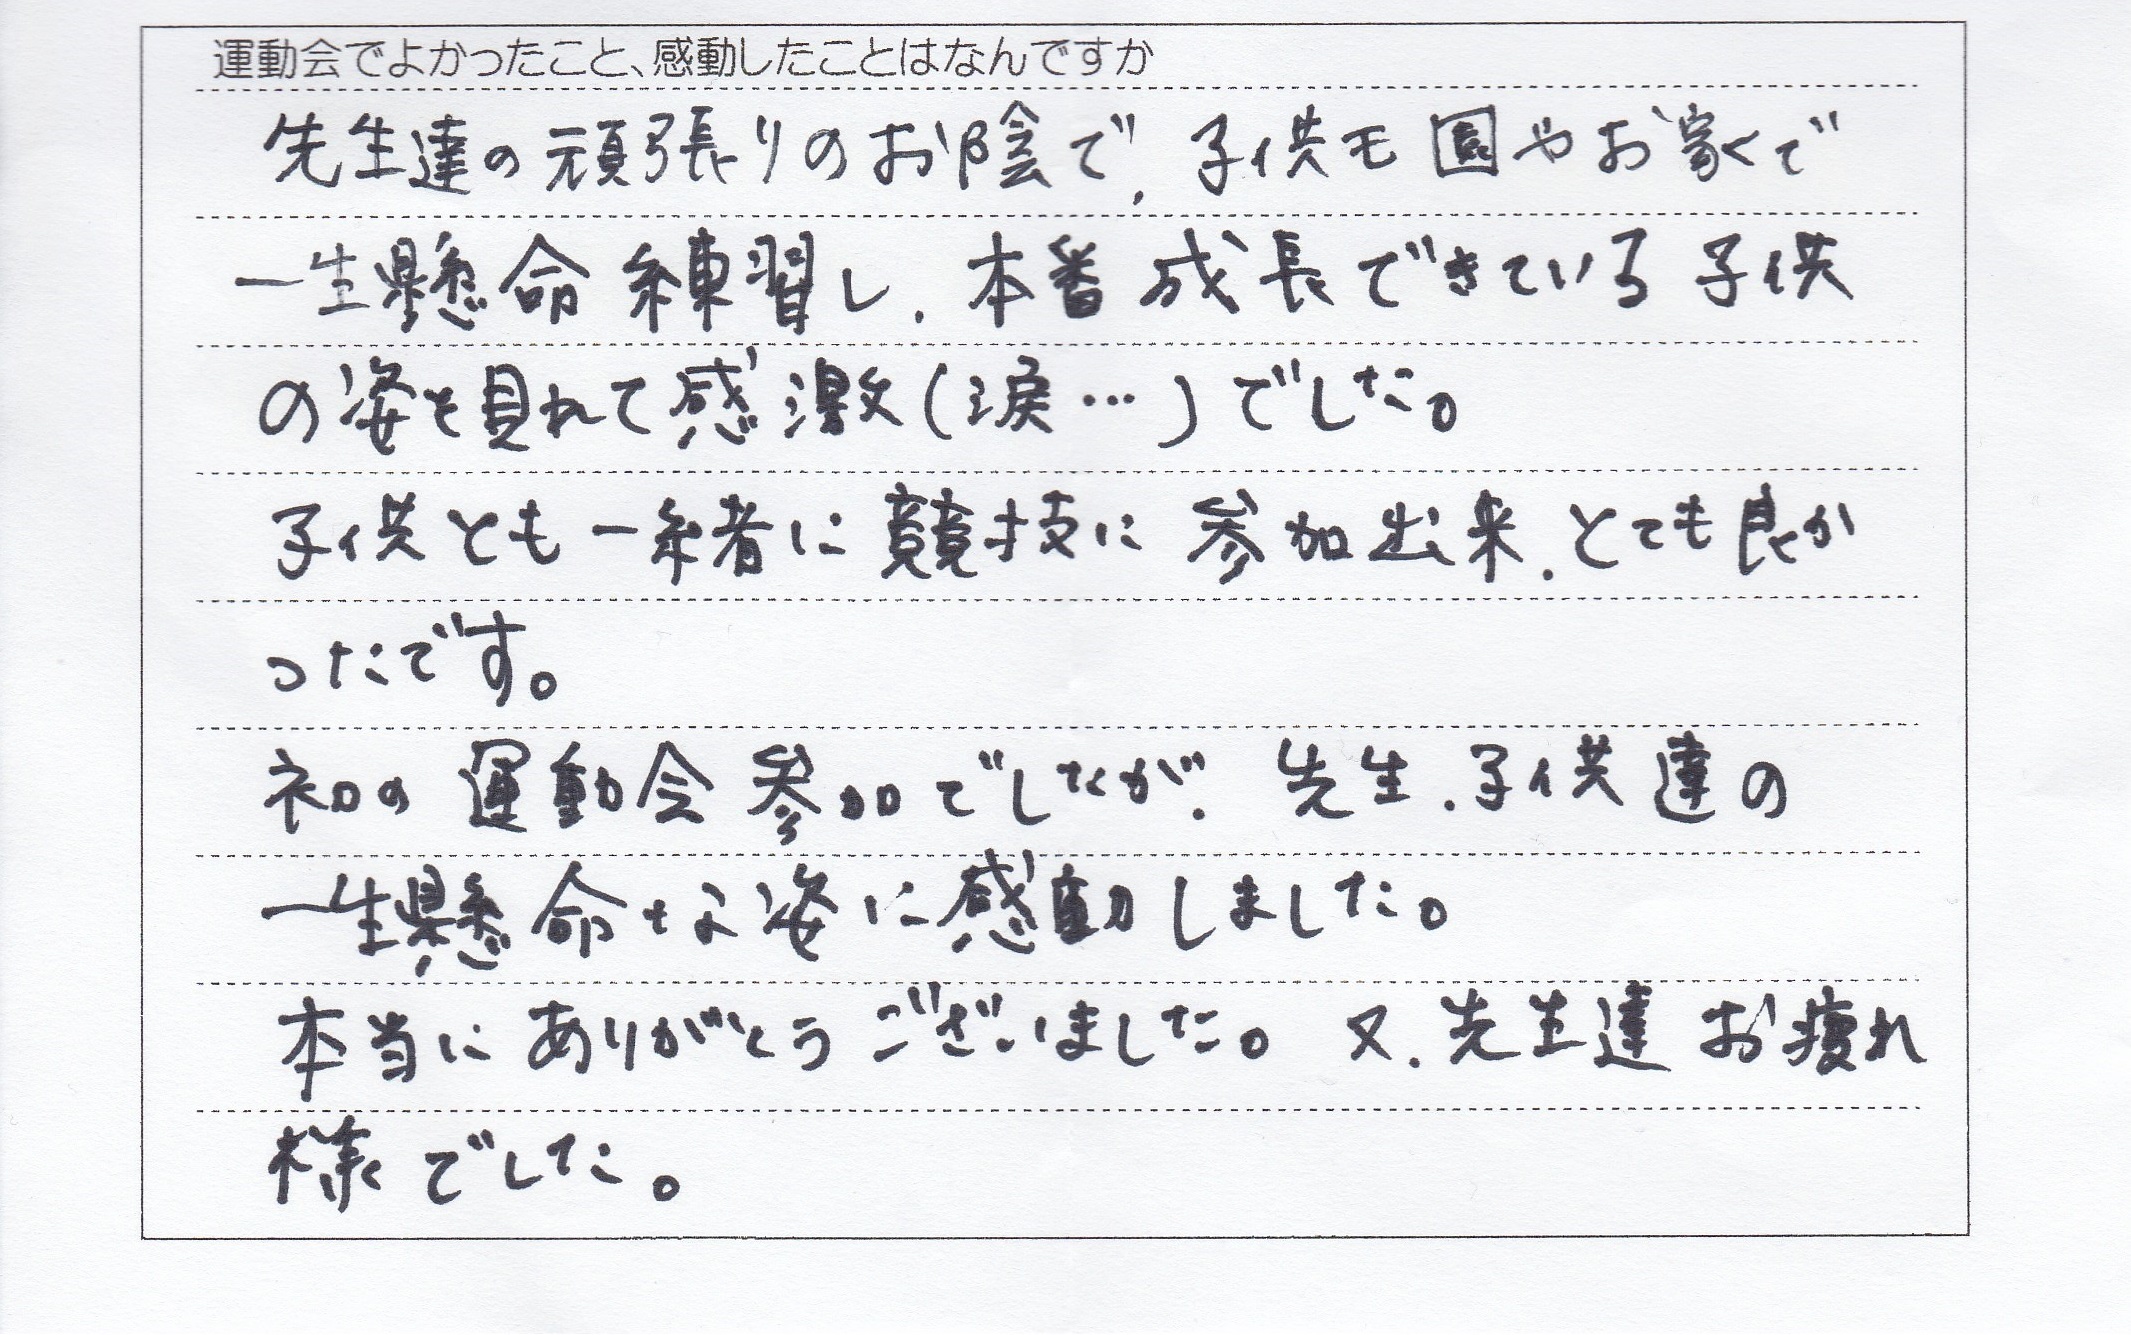 運動会でよかったこと、感動したことはなんですか
先生達の頑張りのお陰で、子供モ園やお家で
一生懸命練習し、本番成長できている子供
の姿を見れて感激(涙…)でした。
子供とも一緒に競技に参加出来、とても良か
ったです。
初の運動会参加でしたが、先生、子供達の
一生懸命な姿に感動しました。
本当にありがとうございました。又、先生達お疲れ
様でした。